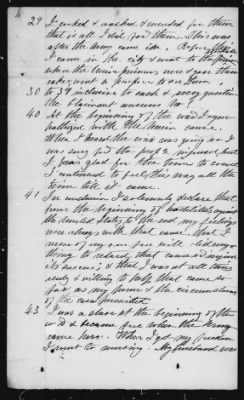 29 I cooked & washed & mended for them
that is all I did for them. This was
after the Army came in. Before that
I came in the city & went to the prison
where the Union prisoners were & gave them
30 to 39 inclusive to each & every question
the claimant answers No?
40 At the beginning of the war I sym-
pathized with the Union cause.
When I heard the war was going on I
was glad for the time to come
I continued to feel this way all the
time till it came.
41 In conclusion I solemnly declare that
from the beginning of hostilities against
the United States to the end my feelings
were always with that cause. That I
never of my own free will did any-
thing to retard that cause or injure
its success; & that I was at all times
ready & willing to help that cause so
far as my power & the circumstances
of the case permitted
43 I was a slave at the beginning of the
war & became free when the Army
came here. When I got my freedom
I went to nursing. My husband was